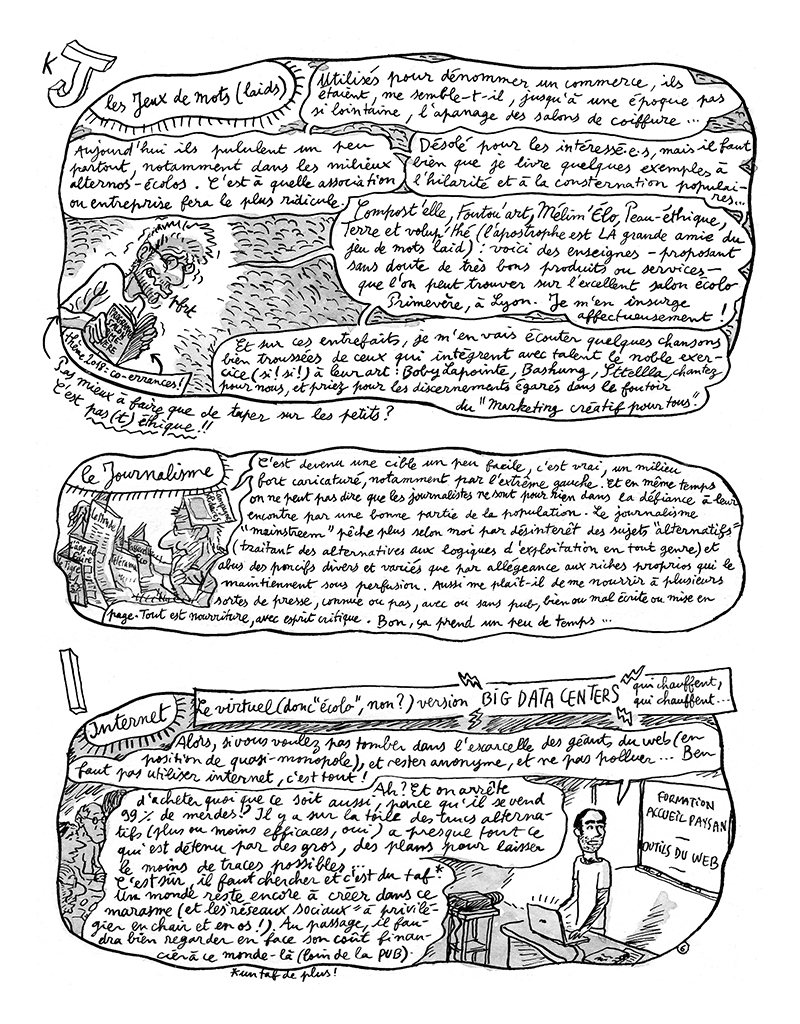 K
J
les Jeux de mots (laids)
Utilisés pour dénommer un commerce, ils
étaient, me semble-t-il, jusqu'à une époque pas
si lointaine, l'apanage des salons de coiffure...
Aujourd'hui ils pullulent un peu
partout, notamment dans les milieux
alternos-écolos. C'est à quelle association
ou entreprise fera le plus ridicule.
Désolé pour les intéressé·e·s, mais il faut
bien que je livre quelques exemples à
l'hilarité et à la consternation populai-
res...
Compost'elle, Foutou'art, Mélim'Élo, Peau-éthique,
Terre et volup'thé (l'apostrophe est LA grande amie du
jeu de mots laid) : voici des enseignes - proposant
sans doute de très bons produits ou services -
que l'on peut trouver sur l'excellent salon écolo
Primevère, à Lyon. Je m'en insurge
affectueusement !
pfrt
thème 2018: co-errances!
Et sur ces entrefaits, je m'en vais écouter quelques chansons
bien troussées de ceux qui intègrent avec talent le noble exer-
cice (si! si!) à leur art : Boby Lapointe, Bashung, Sttellla, chantez
pour nous, et priez pour les discernements égarés dans le foutoir
du "marketing créatif pour tous".
Pas mieux à faire que de taper sur les petits?
C'est pas(t) éthique!!
le Journalisme
C'est devenu une cible un peu facile, c'est vrai, un milieu
fort caricaturé, notamment par l'extrême gauche. Et en même temps
on ne peut pas dire que les journalistes ne sont pour rien dans la défiance à leur
encontre par une bonne partie de la population. Le journalisme
"mainstreem" pêche plus selon moi par désintérêt des sujets "alternatifs"
(traitant des alternatives aux logiques d'exploitation en tout genre) et
abus des poncifs divers et variés que par allégeance aux riches proprios qui le
maintiennent sous perfusion. Aussi me plait-il de me nourrir à plusieurs
sortes de presse, connue ou pas, avec ou sans pub, bien ou mal écrite ou mise en
page. Tout est nourriture, avec esprit critique. Bon, ça prend un peu de temps...
le Monde
L'age de
faire
Télérama
I
Internet
Le virtuel (donc "écolo", non?) version BIG DATA CENTERS qui chauffent,
qui chauffent...
Alors, si vous voulez pas tomber dans l'escarcelle des géants du web (en
position de quasi-monopole), et rester anonyme, et ne pas polluer... Ben
faut pas utiliser internet, c'est tout !
Ah? Et on arrête
d'acheter quoi que ce soit aussi, parce qu'il se vend
99% de merdes? Il y a sur la toile des trucs alterna-
tifs (plus ou moins efficaces, oui) à presque tout ce
qui est détenu par des gros, des plans pour laisser
le moins de traces possibles...
C'est sûr, il faut chercher et c'est du taf*.
Un monde reste encore à créer dans ce
marasme (et les réseaux sociaux = à privilé-
gier en chair et en os!). Au passage, il fau-
dra bien regarder en face son coût finan-
cier à ce monde-là (loin de la PUB).
*un taf de plus!
FORMATION
ACCUEIL PAYSAN
OUTILS DU WEB
6